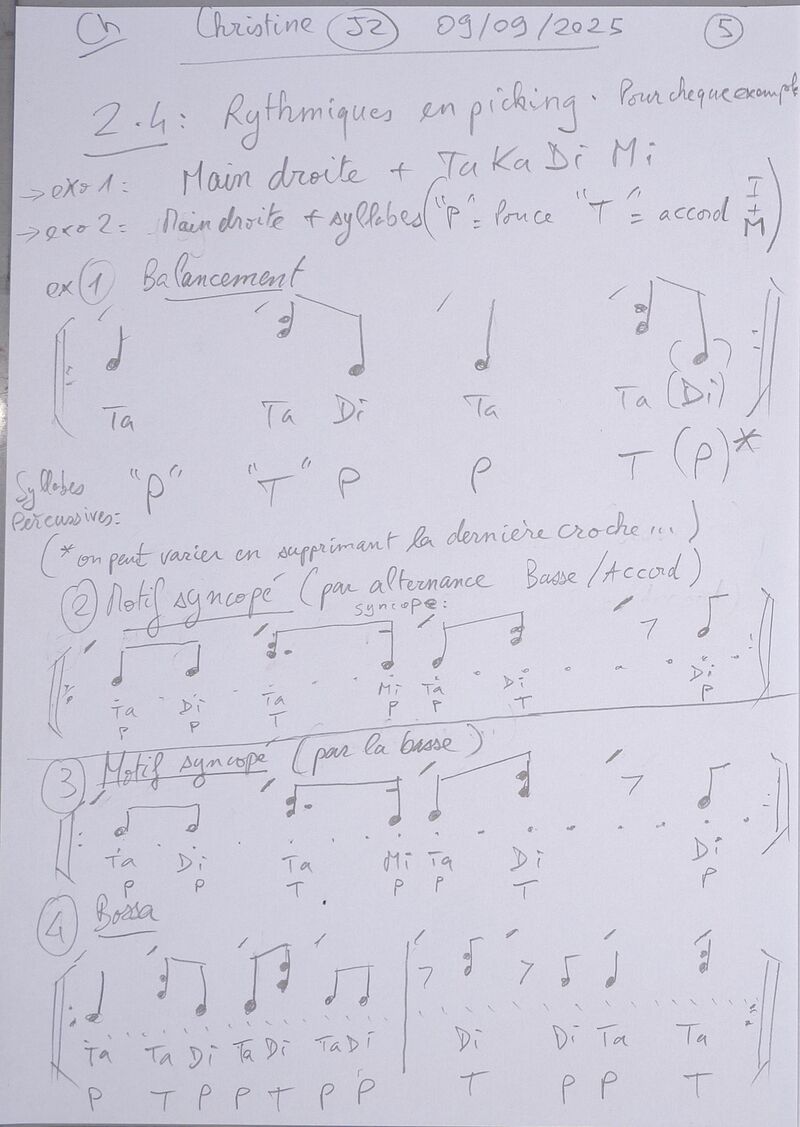 Ch Christine J2 09/09/2025 5
2.4: Rythmiques en picking. Pour chaque exemple
→ exo 1: Main droite + Ta Ka Di Mi
→ exo 2: Main droite + syllabes ("P" = Pouce "T" = accord I + M)
ex 1 Balancement
Ta Ta Di Ta Ta (Di)
Syllabes percussives: "P" "T" P P T (P)*
(* on peut varier en supprimant la dernière croche...)
2 Motif syncopé (par alternance Basse/Accord)
syncope:
Ta Di Ta Mi Ta Di Di
P P T P P T P
3 Motif syncopé (par la basse)
Ta Di Ta Mi Ta Di Di
P P T P P T P
4 Bossa
Ta Ta Di Ta Di Ta Di Di Di Ta Ta
P T P P T P P T P P T